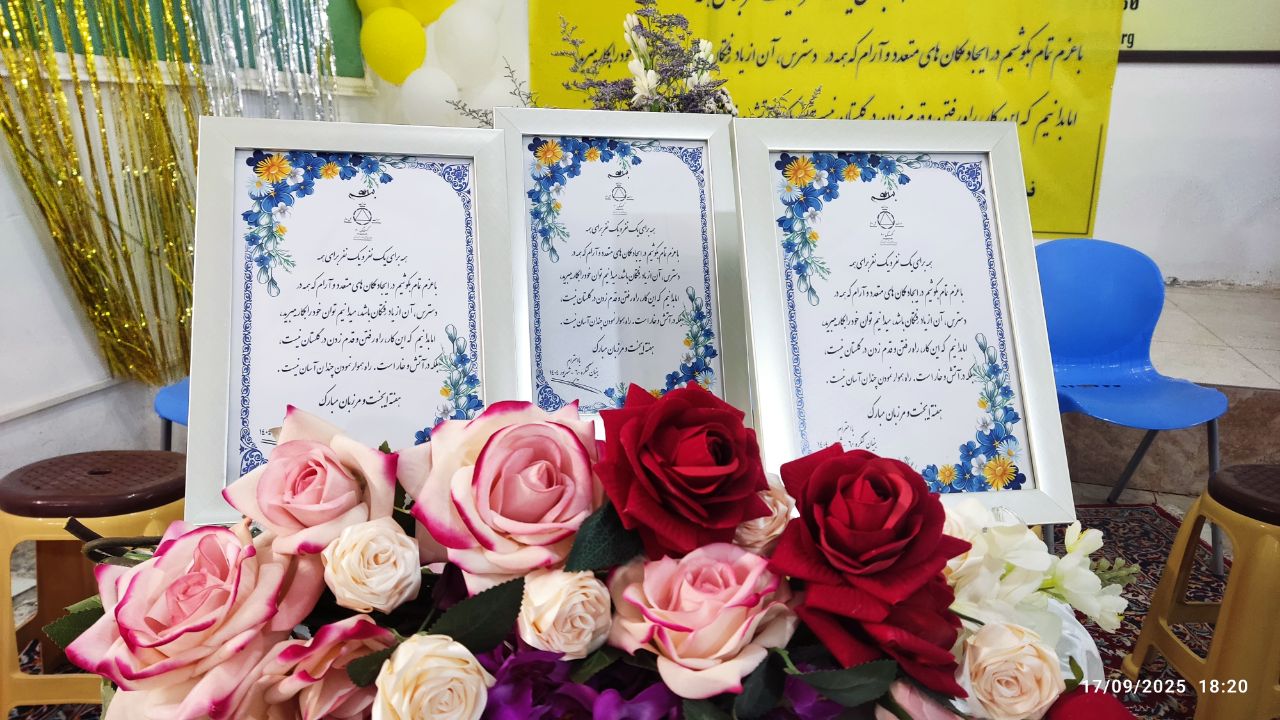 50
rg
باعزم تمام بکوشیم در ایجاد مکان های متعدد و آرام که همه در دسترس، آن از یاد رفتگان خود را بکار ببرید
اما بدانیم که این کار، راه رفتن و قدم زدن در گلستان نیست
همه برای یک نفر و یک نفر برای همه
باعزم تمام بکوشیم در ایجاد مکان های متعدد و آرام که همه در
دسترس، آن از یاد رفتگان باشد، میدانیم توان خود را بکار ببرید،
اما بدانیم که این کار، راه رفتن و قدم زدن در گلستان نیست،
بلکه در آتش و خار است، راه هموار نمودن چندان آسان نیست.
هفته ایجنت و مرزبان مبارک
همه برای یک نفر و یک نفر برای همه
باعزم تمام بکوشیم در ایجاد مکان های متعدد و آرام که همه در
دسترس، آن از یاد رفتگان باشد، میدانیم توان خود را بکار ببرید،
اما بدانیم که این کار، راه رفتن و قدم زدن در گلستان نیست،
بلکه در آتش و خار است، راه هموار نمودن چندان آسان نیست.
هفته ایجنت و مرزبان مبارک
با احترام
همه برای یک نفر و یک نفر برای همه
باعزم تمام بکوشیم در ایجاد مکان های متعدد و آرام که همه در
دسترس، آن از یاد رفتگان باشد، میدانیم توان خود را بکار ببرید،
اما بدانیم که این کار، راه رفتن و قدم زدن در گلستان نیست،
بلکه در آتش و خار است، راه هموار نمودن چندان آسان نیست.
هفته ایجنت و مرزبان مبارک
با احترام
17/09/2025 18:20